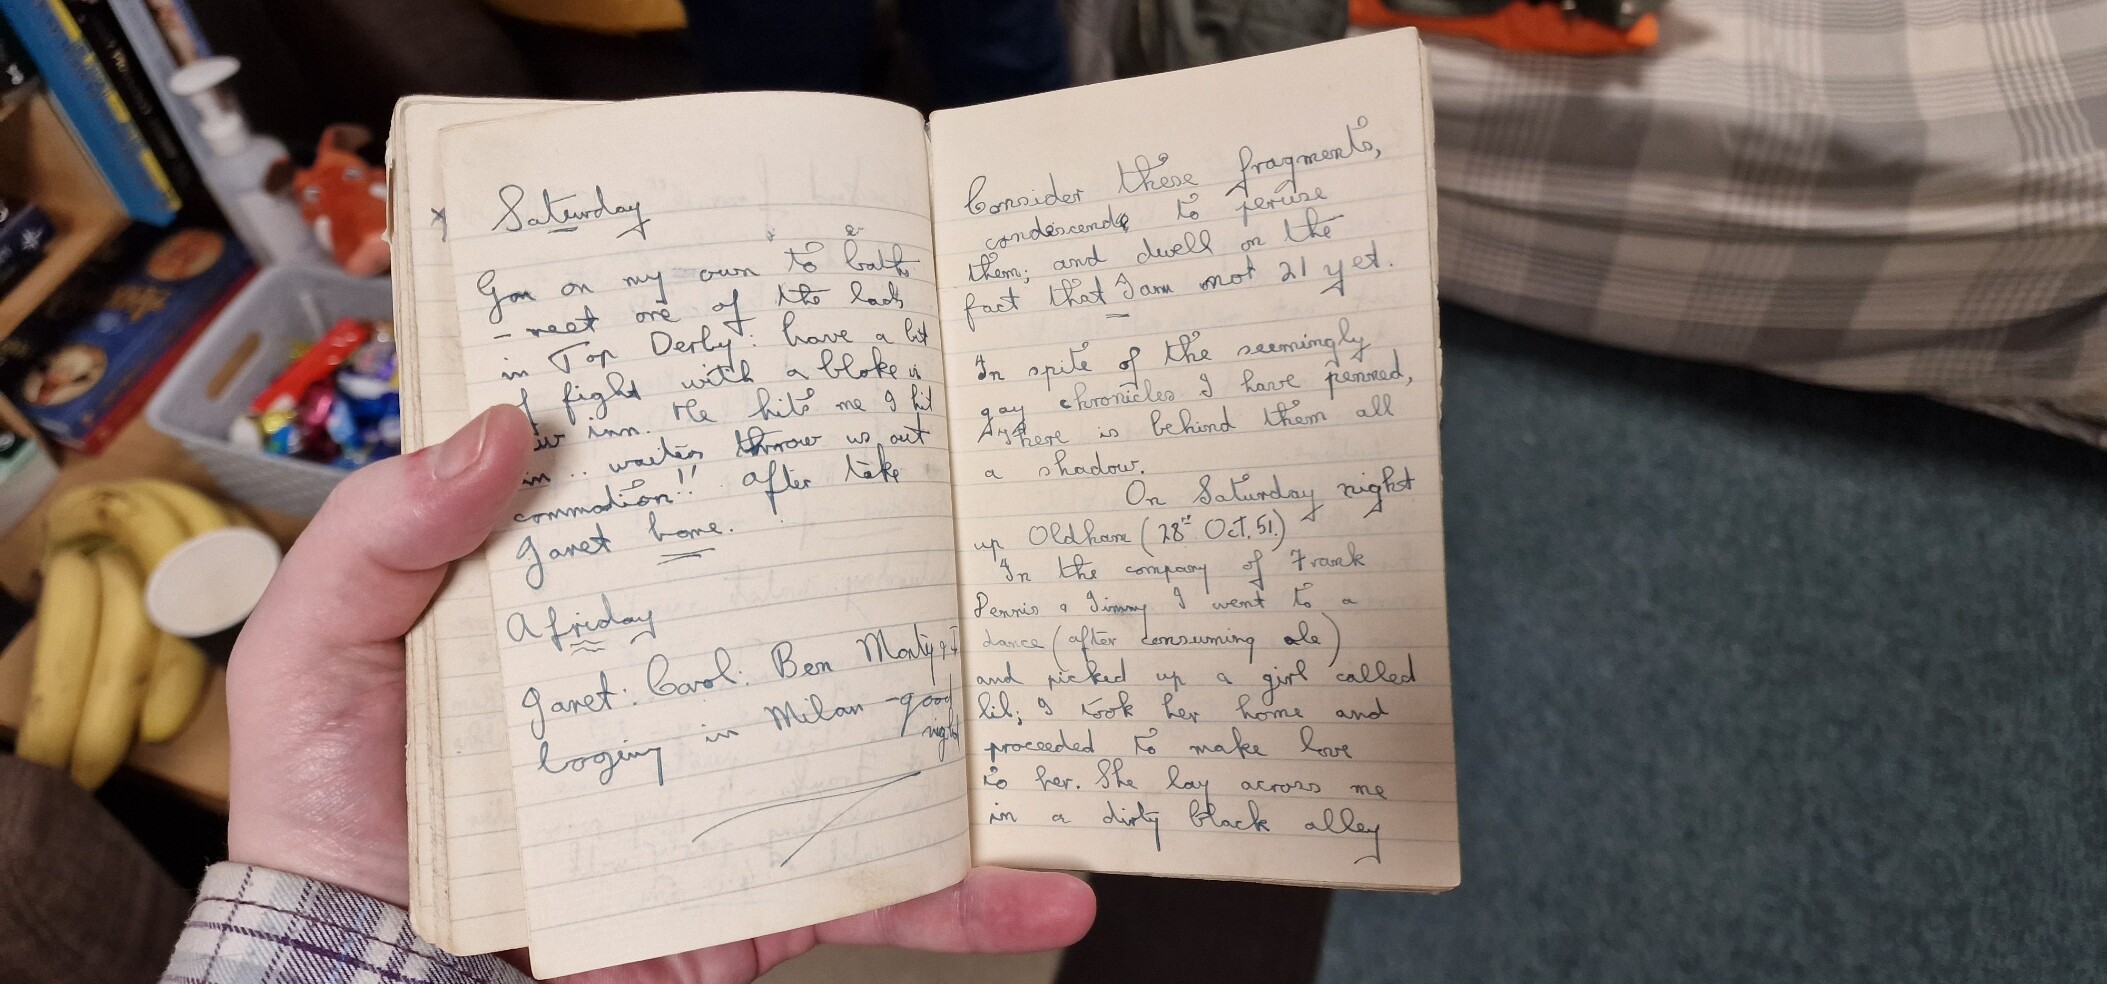 Saturday
Gon on my own to baths
- meet one of the lads
in Top Derby: have a bit
of fight with a bloke in
inn. He hits me I hit
waiters throw us out
commotion!! after take
Janet home.
A friday
Janet: Carol: Ben Morty + I
boozing in Milan - good
night
Consider these fragments,
condescend to peruse
them; and dwell on the
fact that I am not 21 yet.
In spite of the seemingly
gay chronicles I have penned,
there is behind them all
a shadow.
On Saturday night
up Oldham (28th Oct. 51.)
In the company of Frank
Dennis & Jimmy I went to a
dance (after consuming ale)
and picked up a girl called
lil; I took her home and
proceeded to make love
to her. She lay across me
in a dirty black alley